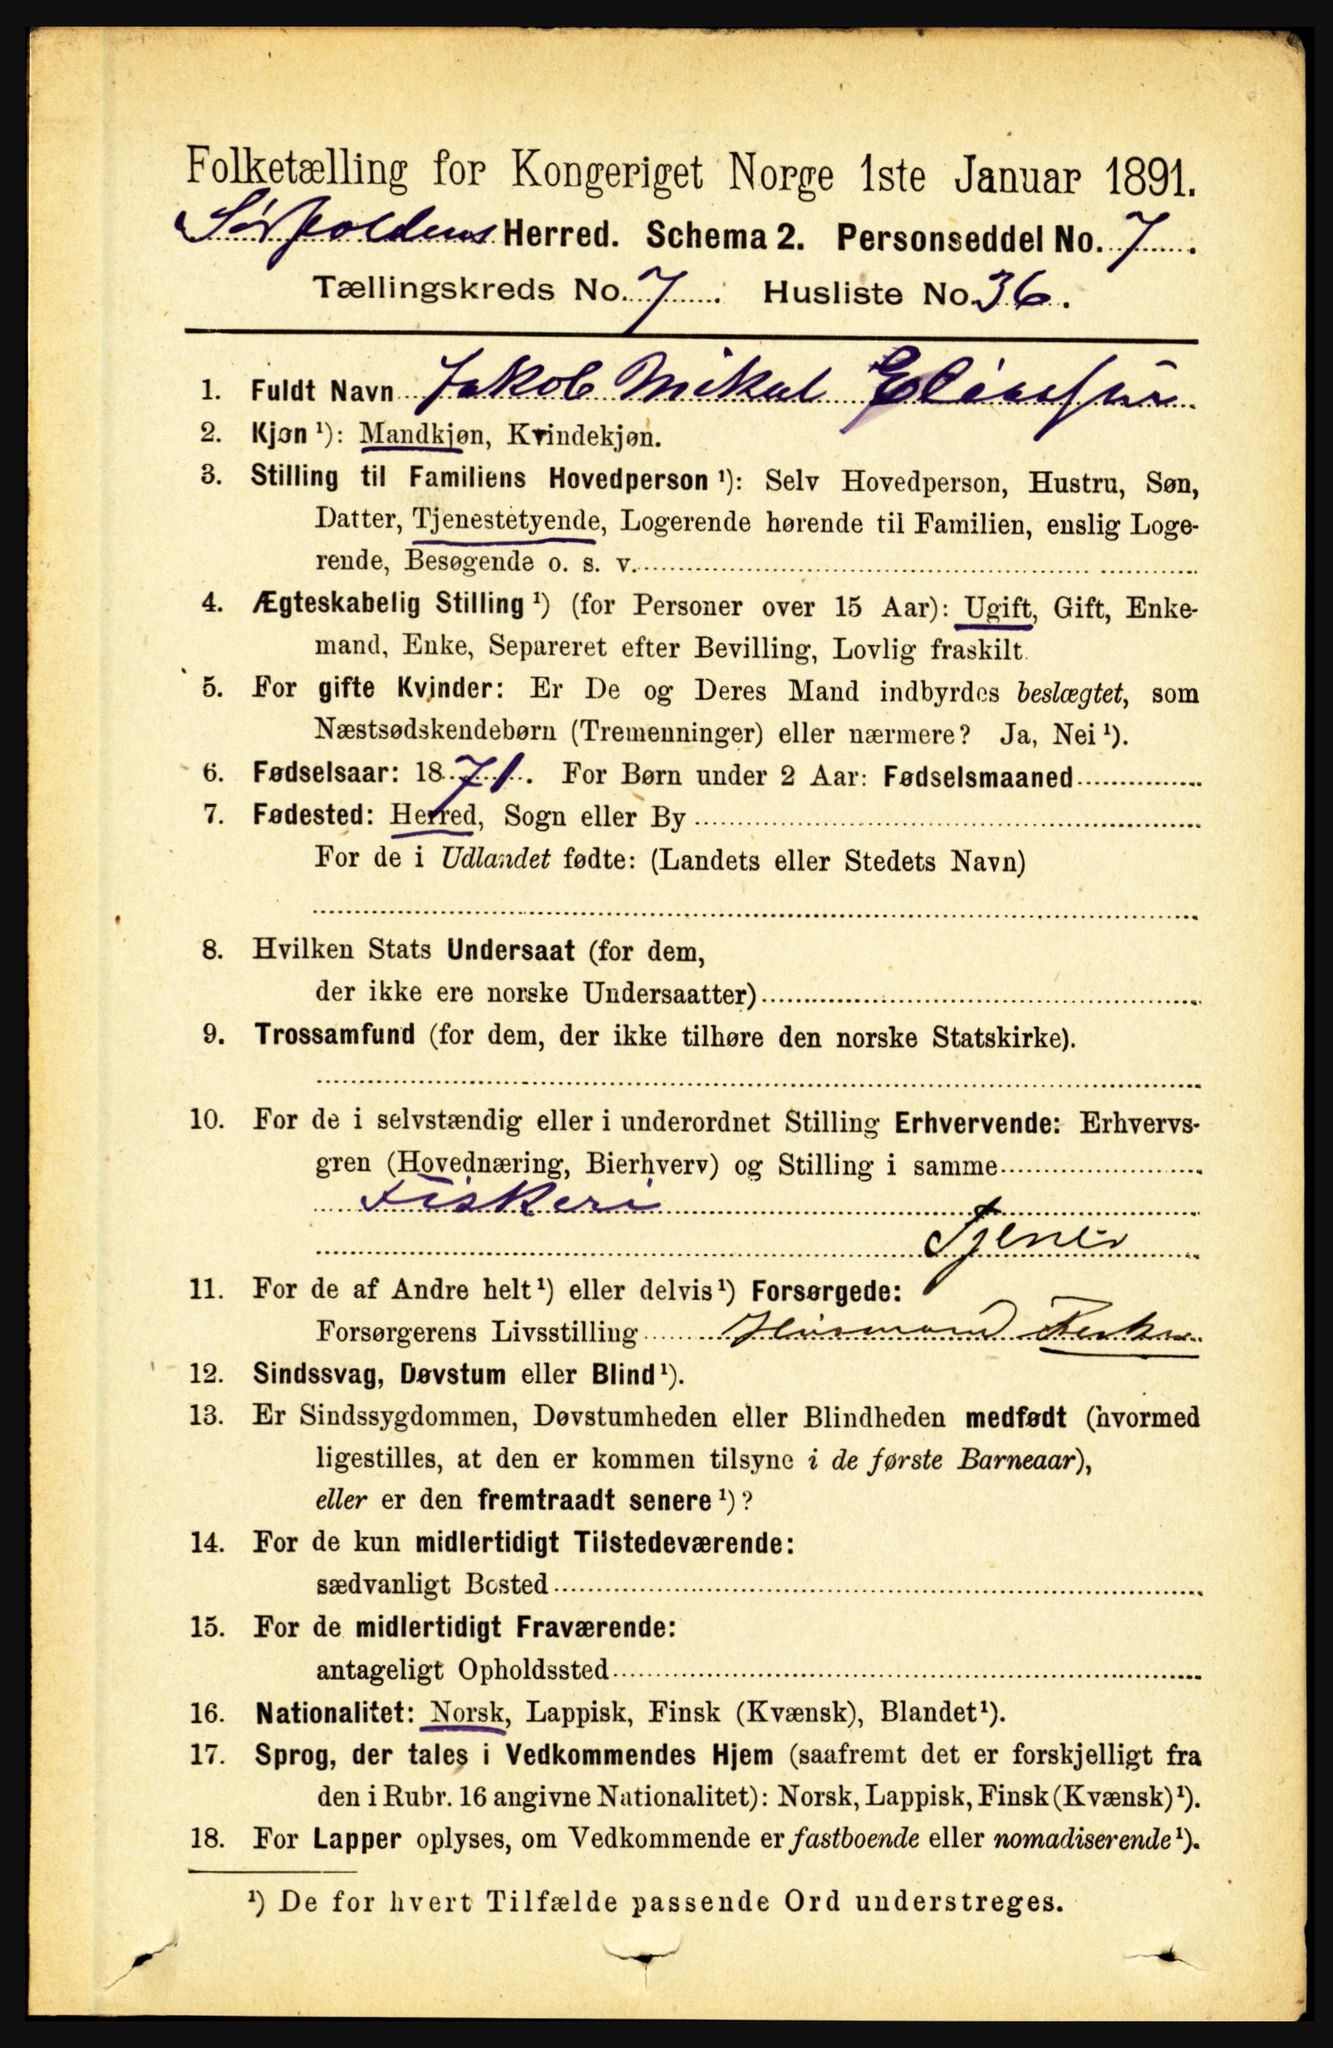 Folketælling for Kongeriget Norge 1ste Januar 1891.
Sørfoldens Herred. Schema 2. Personseddel No. 7.
Tællingskreds No. 7. Husliste No. 36.
1. Fuldt Navn Jakob Mikal Eliassen
2. Kjøn ¹): Mandkjøn, Kvindekjøn.
3. Stilling til Familiens Hovedperson ¹): Selv Hovedperson, Hustru, Søn,
Datter, Tjenestetyende, Logerende hørende til Familien, enslig Loge-
rende, Besøgende o. s. v.
4. Ægteskabelig Stilling ¹) (for Personer over 15 Aar): Ugift, Gift, Enke-
mand, Enke, Separeret efter Bevilling, Lovlig fraskilt.
5. For gifte Kvinder: Er De og Deres Mand indbyrdes beslægtet, som
Næstsødskendebørn (Tremenninger) eller nærmere? Ja, Nei ¹).
6. Fødselsaar: 1871. For Børn under 2 Aar: Fødselsmaaned
7. Fødested: Herred, Sogn eller By
For de i Udlandet fødte: (Landets eller Stedets Navn)
8. Hvilken Stats Undersaat (for dem,
der ikke ere norske Undersaatter)
9. Trossamfund (for dem, der ikke tilhøre den norske Statskirke).
10. For de i selvstændig eller i underordnet Stilling Erhvervende: Erhvervs-
gren (Hovednæring, Bierhverv) og Stilling i samme
Fiskeri
Tjener
11. For de af Andre helt ¹) eller delvis ¹) Forsørgede:
Forsørgerens Livsstilling Husmand Fisker
12. Sindssvag, Døvstum eller Blind ¹).
13. Er Sindssygdommen, Døvstumheden eller Blindheden medfødt (hvormed
ligestilles, at den er kommen tilsyne i de første Barneaar),
eller er den fremtraadt senere ¹)?
14. For de kun midlertidigt Tilstedeværende:
sædvanligt Bosted
15. For de midlertidigt Fraværende:
antageligt Opholdssted
16. Nationalitet: Norsk, Lappisk, Finsk (Kvænsk), Blandet ¹).
17. Sprog, der tales i Vedkommendes Hjem (saafremt det er forskjelligt fra
den i Rubr. 16 angivne Nationalitet): Norsk, Lappisk, Finsk (Kvænsk) ¹).
18. For Lapper oplyses, om Vedkommende er fastboende eller nomadiserende ¹).
¹) De for hvert Tilfælde passende Ord understreges.